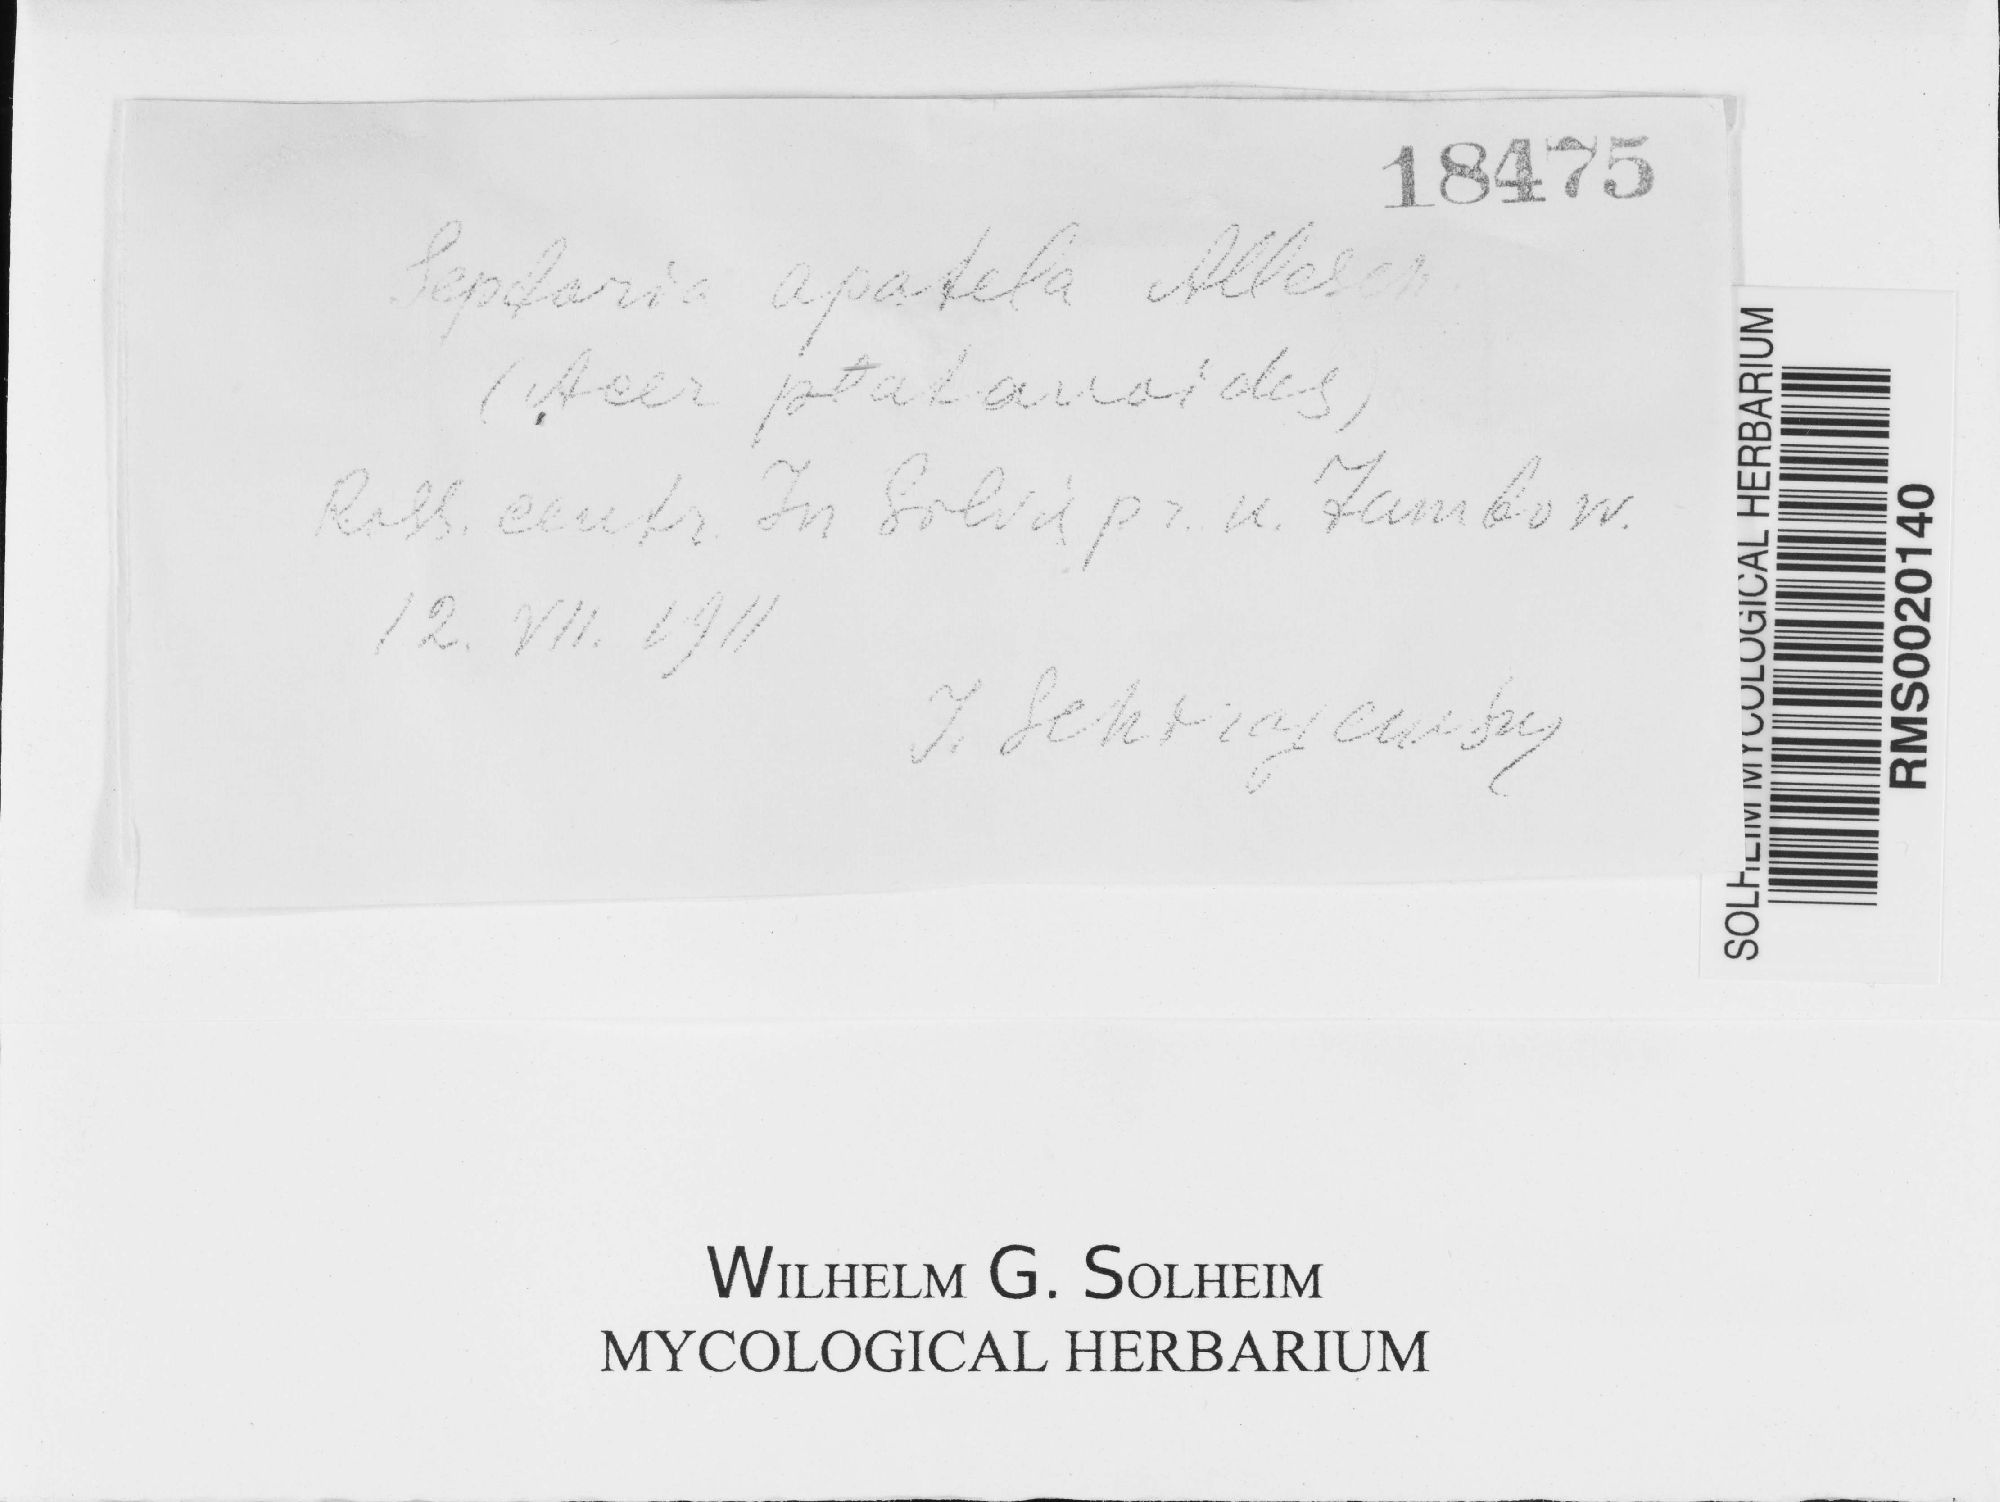 18475
Septoria apatela Allesch.
(Acer platanoides)
Ross. centr. In Solvis pr. u. Tambow.
12. VII. 1911
J.
SOLHEIM MYCOLOGICAL HERBARIUM
RMS0020140
WILHELM G. SOLHEIM
MYCOLOGICAL HERBARIUM